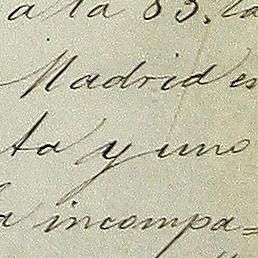 a la 83. la
Madrid es
ta y uno
a incompa=